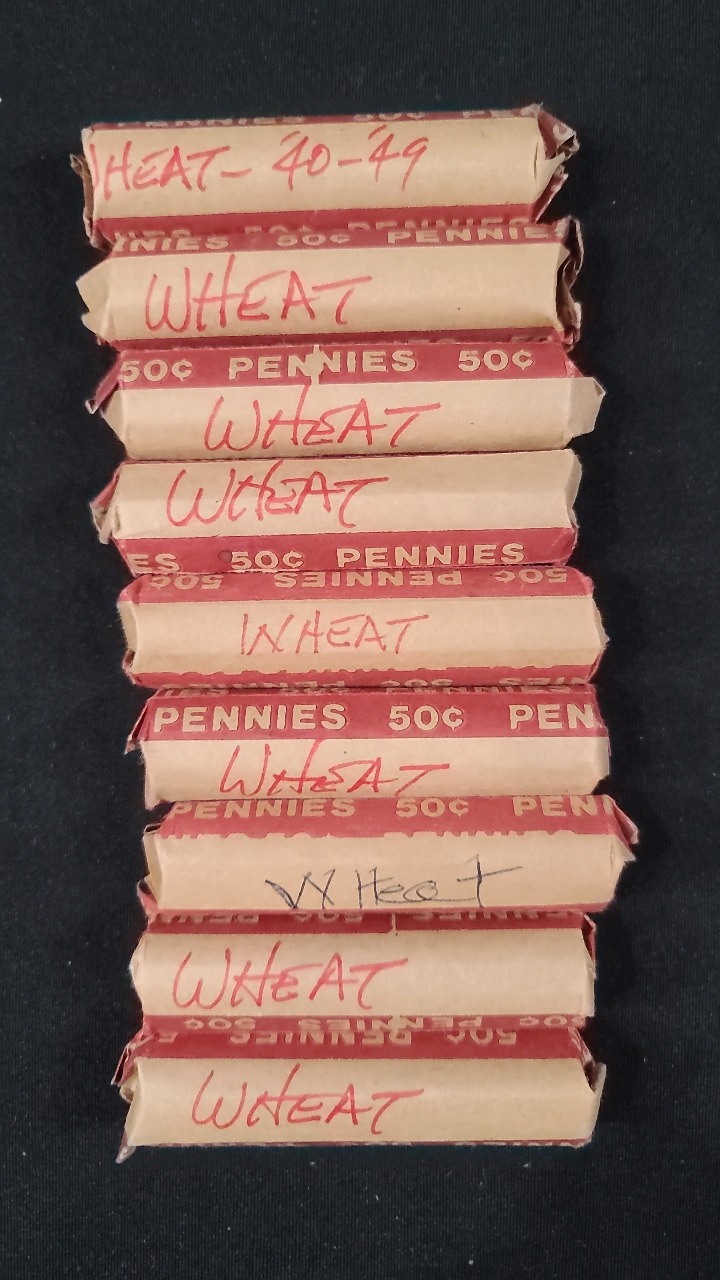 HEAT- '40-'49
NNIES 50¢ PENNIE
WHEAT
50¢ PENNIES 50¢
WHEAT
WHEAT
ES 50¢ PENNIES
50¢ PENNIES 50¢
WHEAT
PENNIES 50¢ PEN
WHEAT
PENNIES 50¢ PENN
WHeat
WHEAT
50¢ PENNIES 50¢
50¢ PENNIES
WHEAT